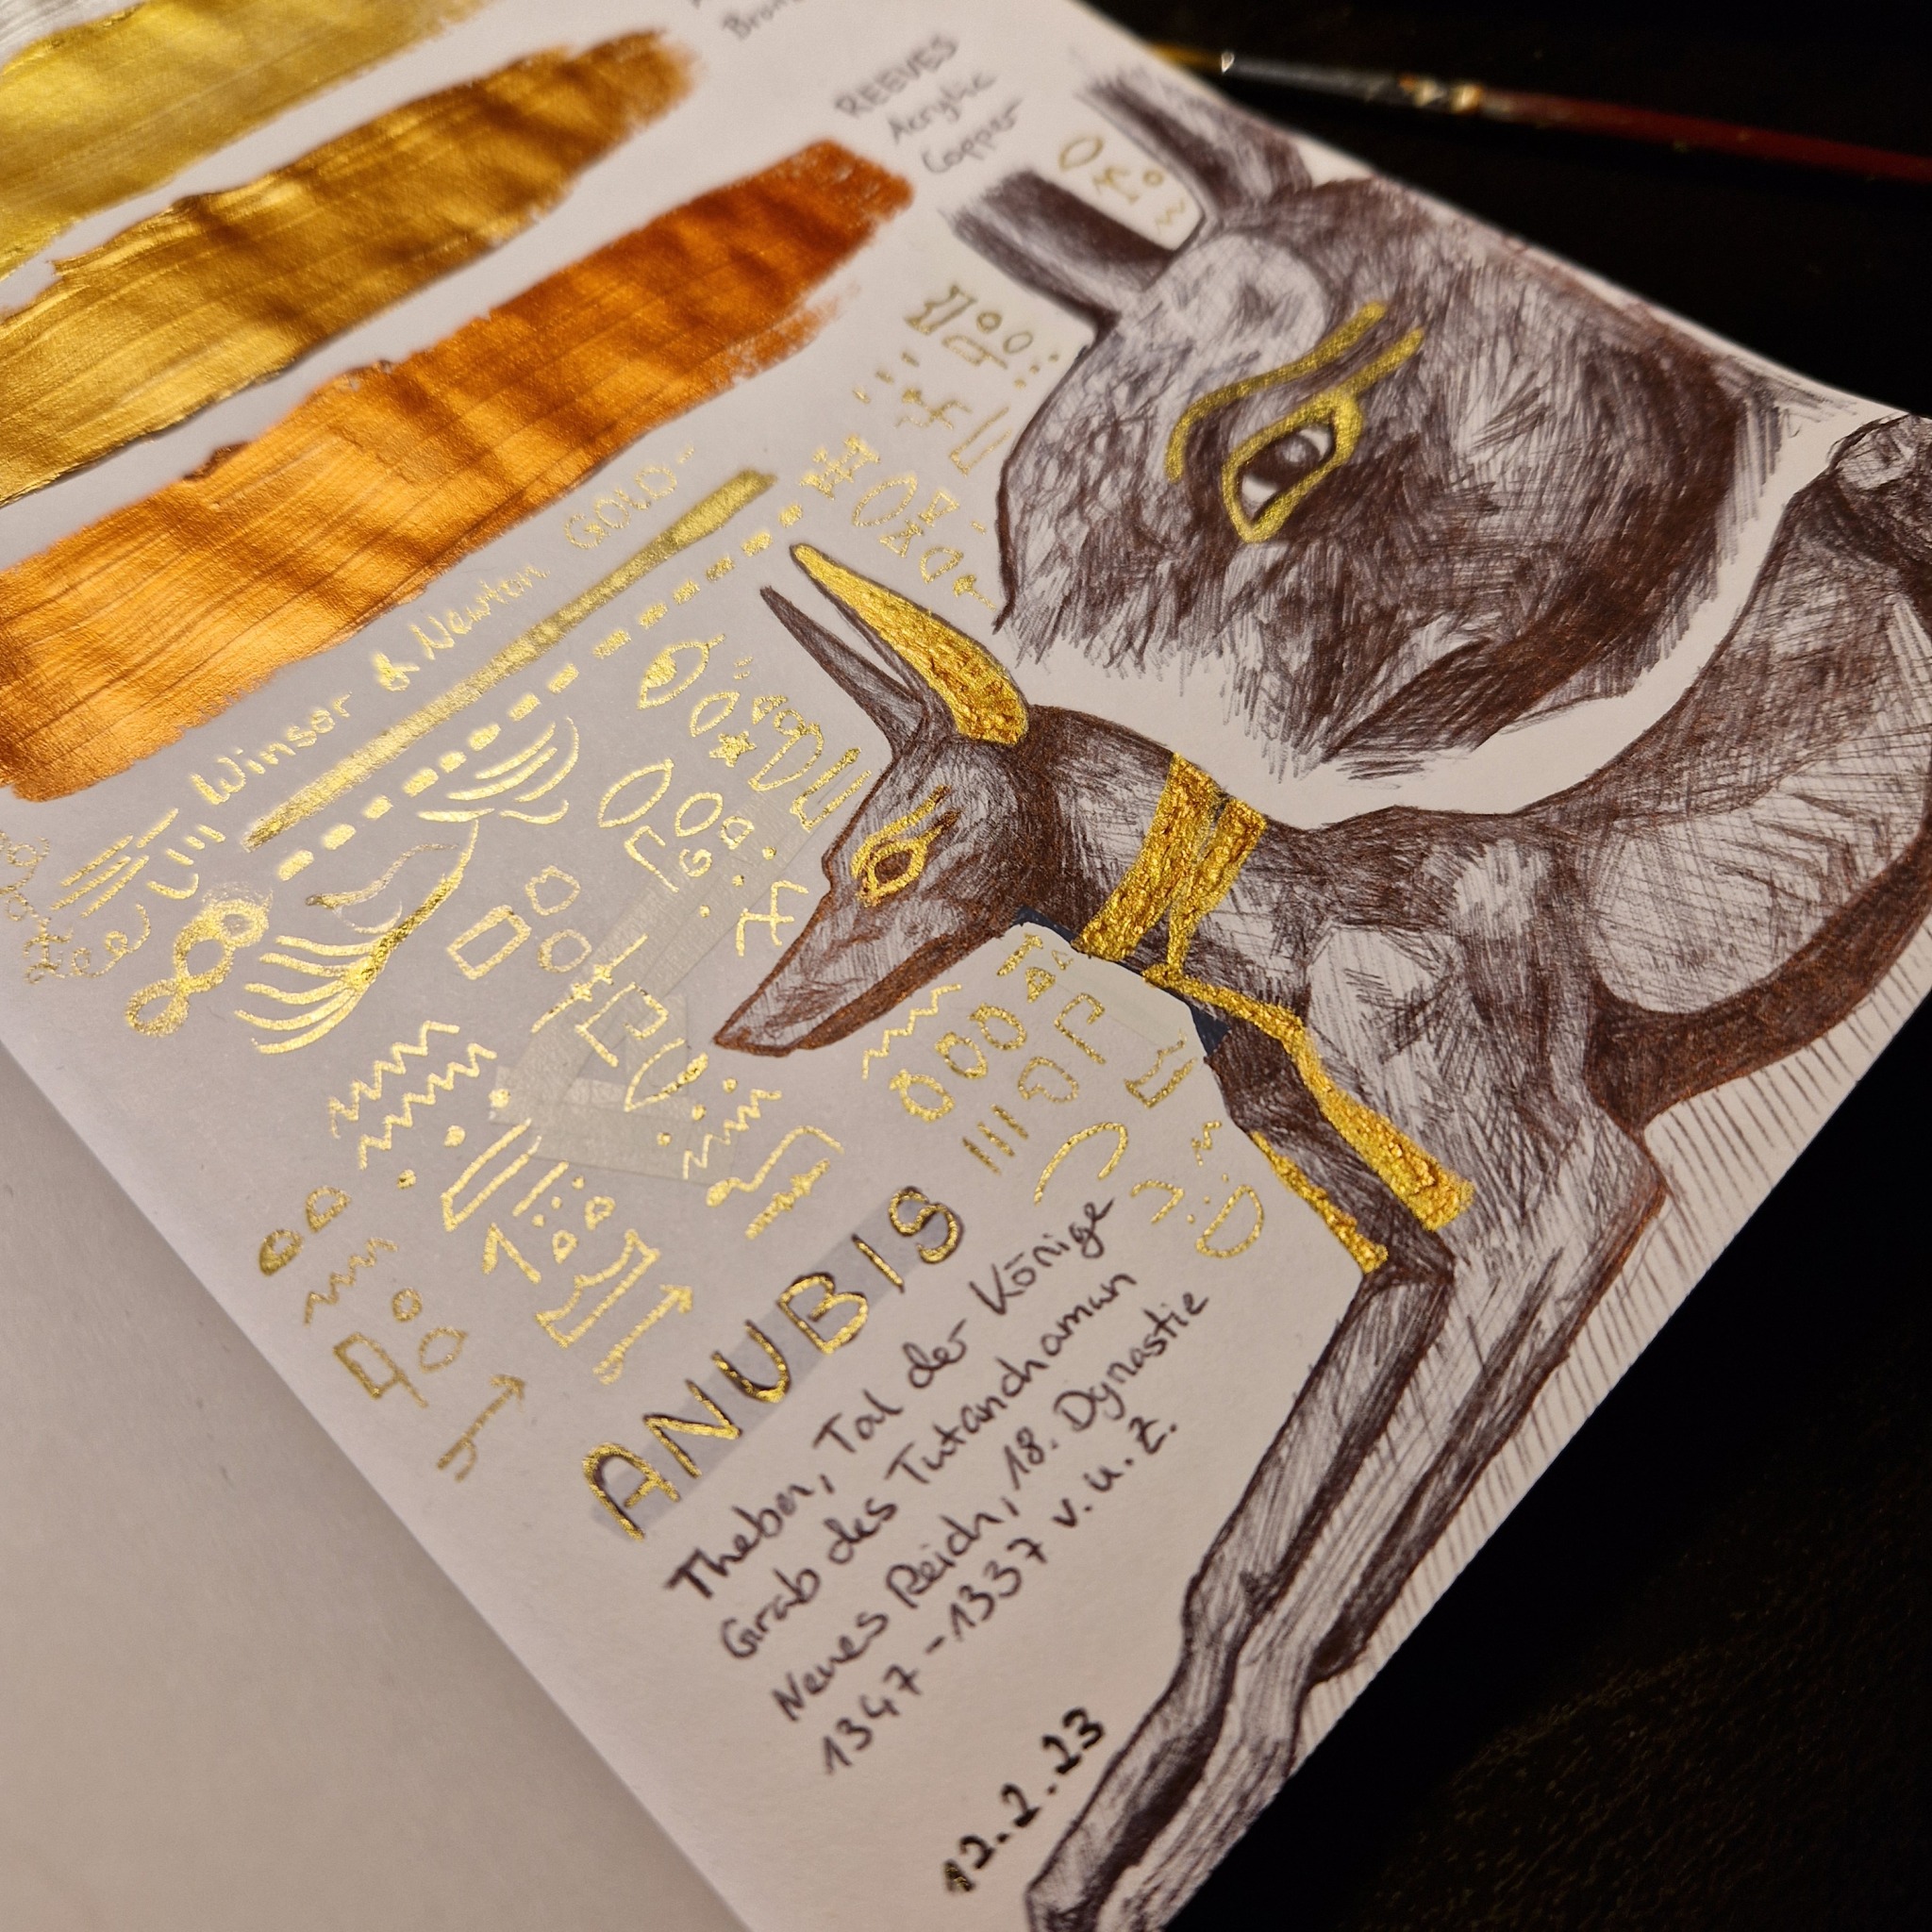 REEVES
Acrylic
Copper
Winsor & Newton GOLD-
ANUBIS
Theben, Tal der Könige
Grab des Tutanchamun
Neues Reich, 18. Dynastie
1347 - 1337 v.u.Z.
12.2.23